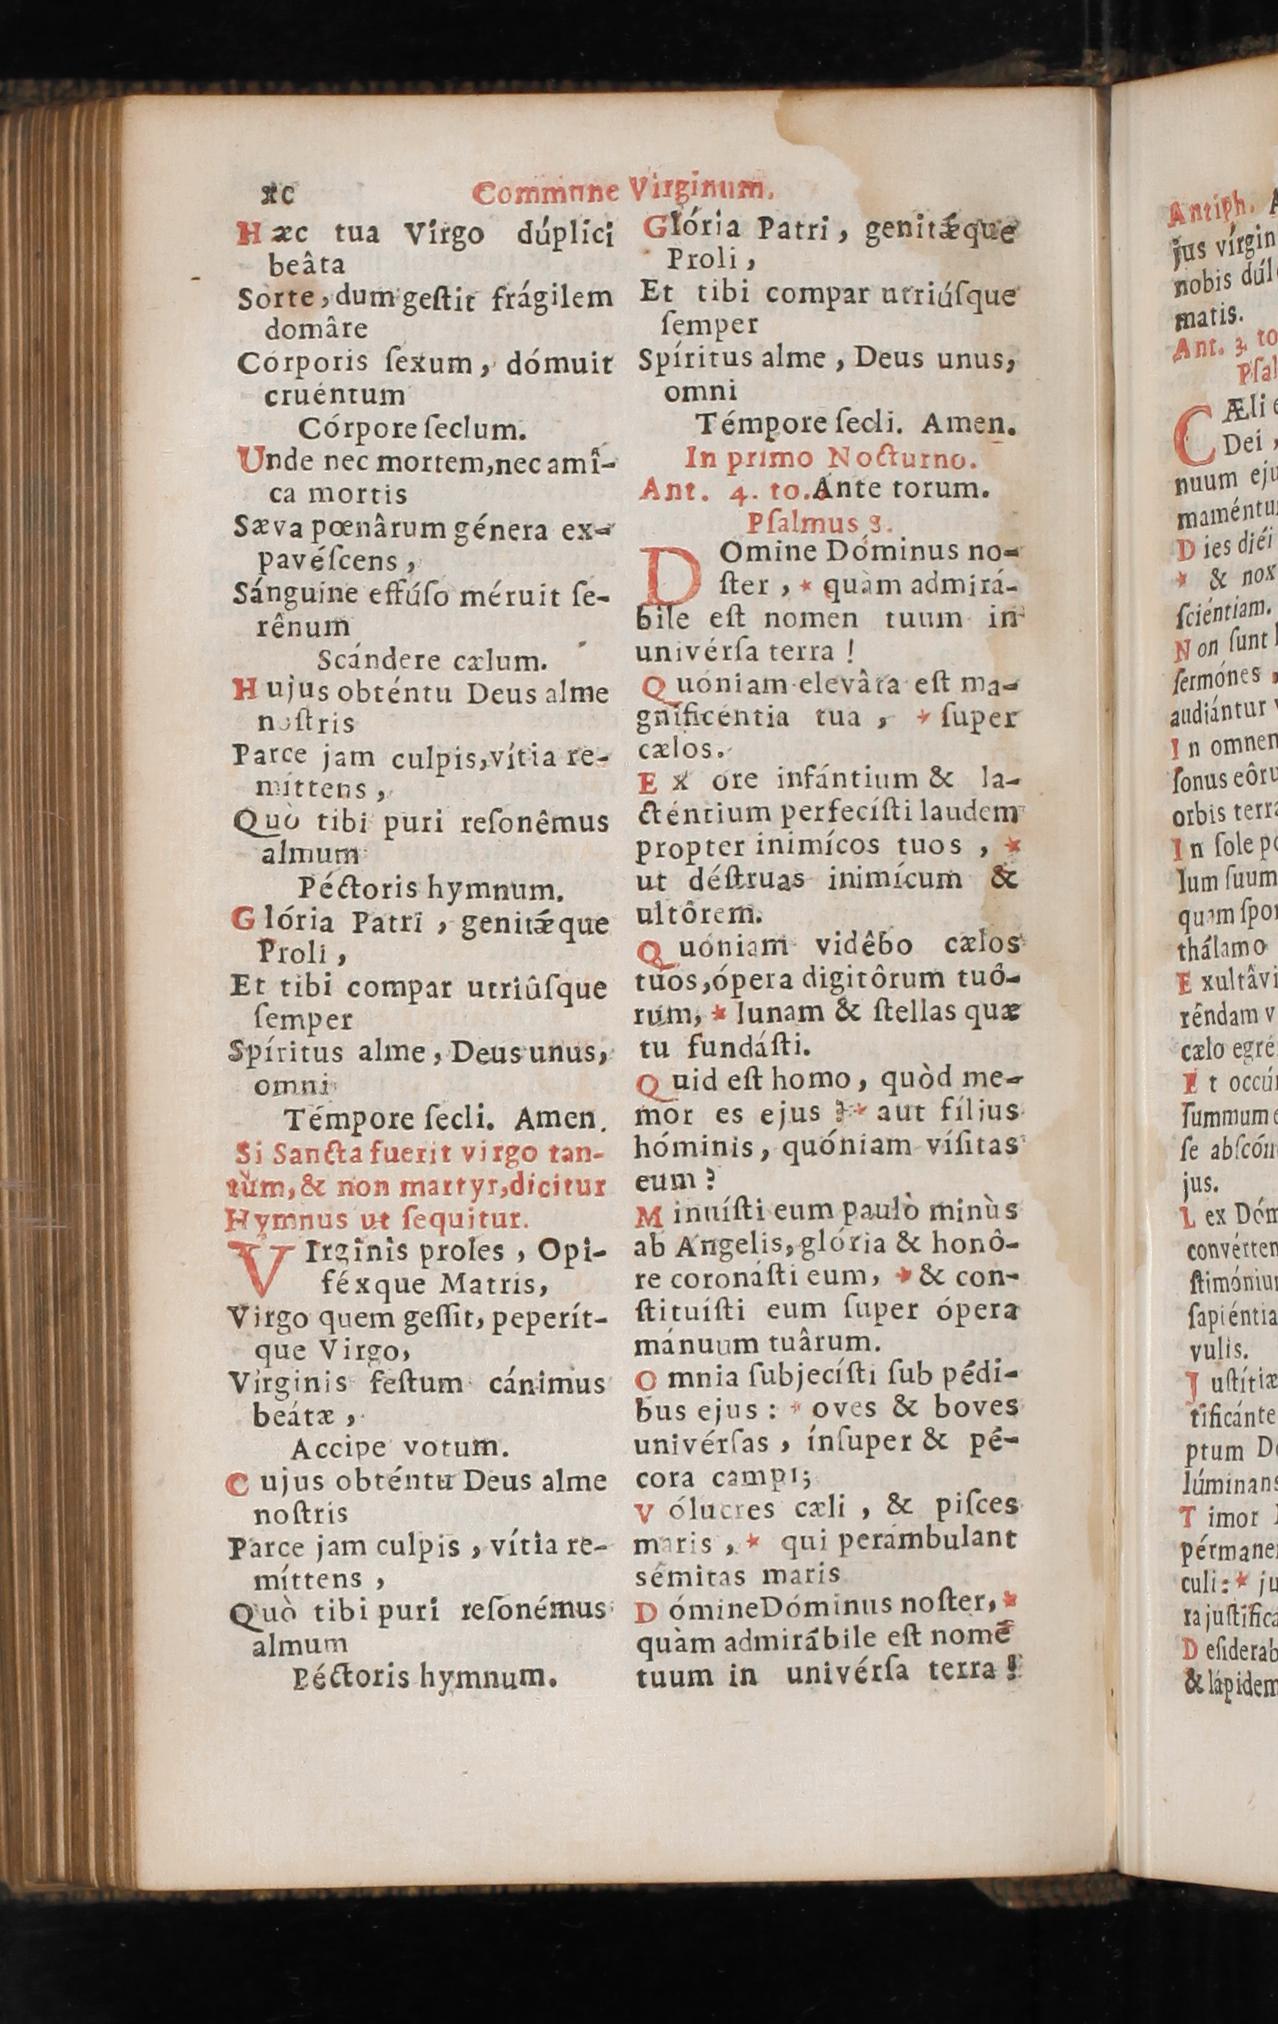 xc
Commune Virginum.
Hæc tua Virgo dúplici
beâta
Sorte, dum geſtit frágilem
domâre
Córporis ſexum, dómuit
cruéntum
Córpore ſeclum.
Unde nec mortem, nec amî-
ca mortis
Sæva pœnârum génera ex-
pavéſcens,
Sánguine effúſo méruit ſe-
rênum
Scándere cælum.
Hujus obténtu Deus alme
noſtris
Parce jam culpis, vítia re-
míttens,
Quò tibi puri reſonêmus
almum
Péctoris hymnum.
Glória Patri, genitǽque
Proli,
Et tibi compar utriûſque
ſemper
Spíritus alme, Deus unus,
omni
Témpore ſecli. Amen.
Si Sancta fuerit virgo tan-
tùm, & non martyr, dicitur
Hymnus ut ſequitur.
VIrginis proles, Opi-
féxque Matris,
Virgo quem geſſit, peperít-
que Virgo,
Virginis feſtum cánimus
beátæ,
Accipe votum.
Cujus obténtu Deus alme
noſtris
Parce jam culpis, vítia re-
míttens,
Quò tibi puri reſonémus
almum
Péctoris hymnum.
Glória Patri, genitǽque
Proli,
Et tibi compar utriúſque
ſemper
Spíritus alme, Deus unus,
omni
Témpore ſecli. Amen.
In primo Nocturno.
Ant. 4. to. Ante torum.
Pſalmus 8.
DOmine Dóminus no-
ſter, * quàm admirá-
bile eſt nomen tuum in
univérſa terra!
Quóniam elevâta eſt ma-
gnificéntia tua, * ſuper
cælos.
Ex ore infántium & la-
cténtium perfecíſti laudem
propter inimícos tuos, *
ut déſtruas inimícum &
ultôrem.
Quóniam vidêbo cælos
tuos, ópera digitôrum tuô-
rum, * lunam & ſtellas quæ
tu fundáſti.
Quid eſt homo, quòd me-
mor es ejus? * aut fílius
hóminis, quóniam víſitas
eum?
Minuíſti eum paulò minùs
ab Angelis, glória & honô-
re coronáſti eum, * & con-
ſtituíſti eum ſuper ópera
mánuum tuârum.
Omnia ſubjecíſti ſub pédi-
bus ejus: * oves & boves
univérſas, ínſuper & pé-
cora campi;
Vólucres cæli, & piſces
maris, * qui perámbulant
sémitas maris
DómineDóminus noſter, *
quàm admirábile eſt nomē
tuum in univérſa terra!
Antiph.
jus vírgin
nobis dúl
matis.
Ant. 3. to
Pſal
CÆli e
Dei,
nuum eju
maméntu
Dies diéi
* & nox
ſciéntiam.
Non ſunt l
ſermónes,
audiántur v
In omnem
ſonus eôru
orbis terra
In ſole po
lum ſuum
quam ſpon
thálamo
Exultâvi
réndam v
cælo egré
Et occúr
ſummum e
ſe abſcón
jus.
Lex Dóm
convérten
ſtimónium
ſapiéntia
vulis.
Juſtítiæ
tificánte
ptum Do
lúminans
Timor
pérmane
culi: * ju
ra juſtifica
Deſiderab
& lápidem